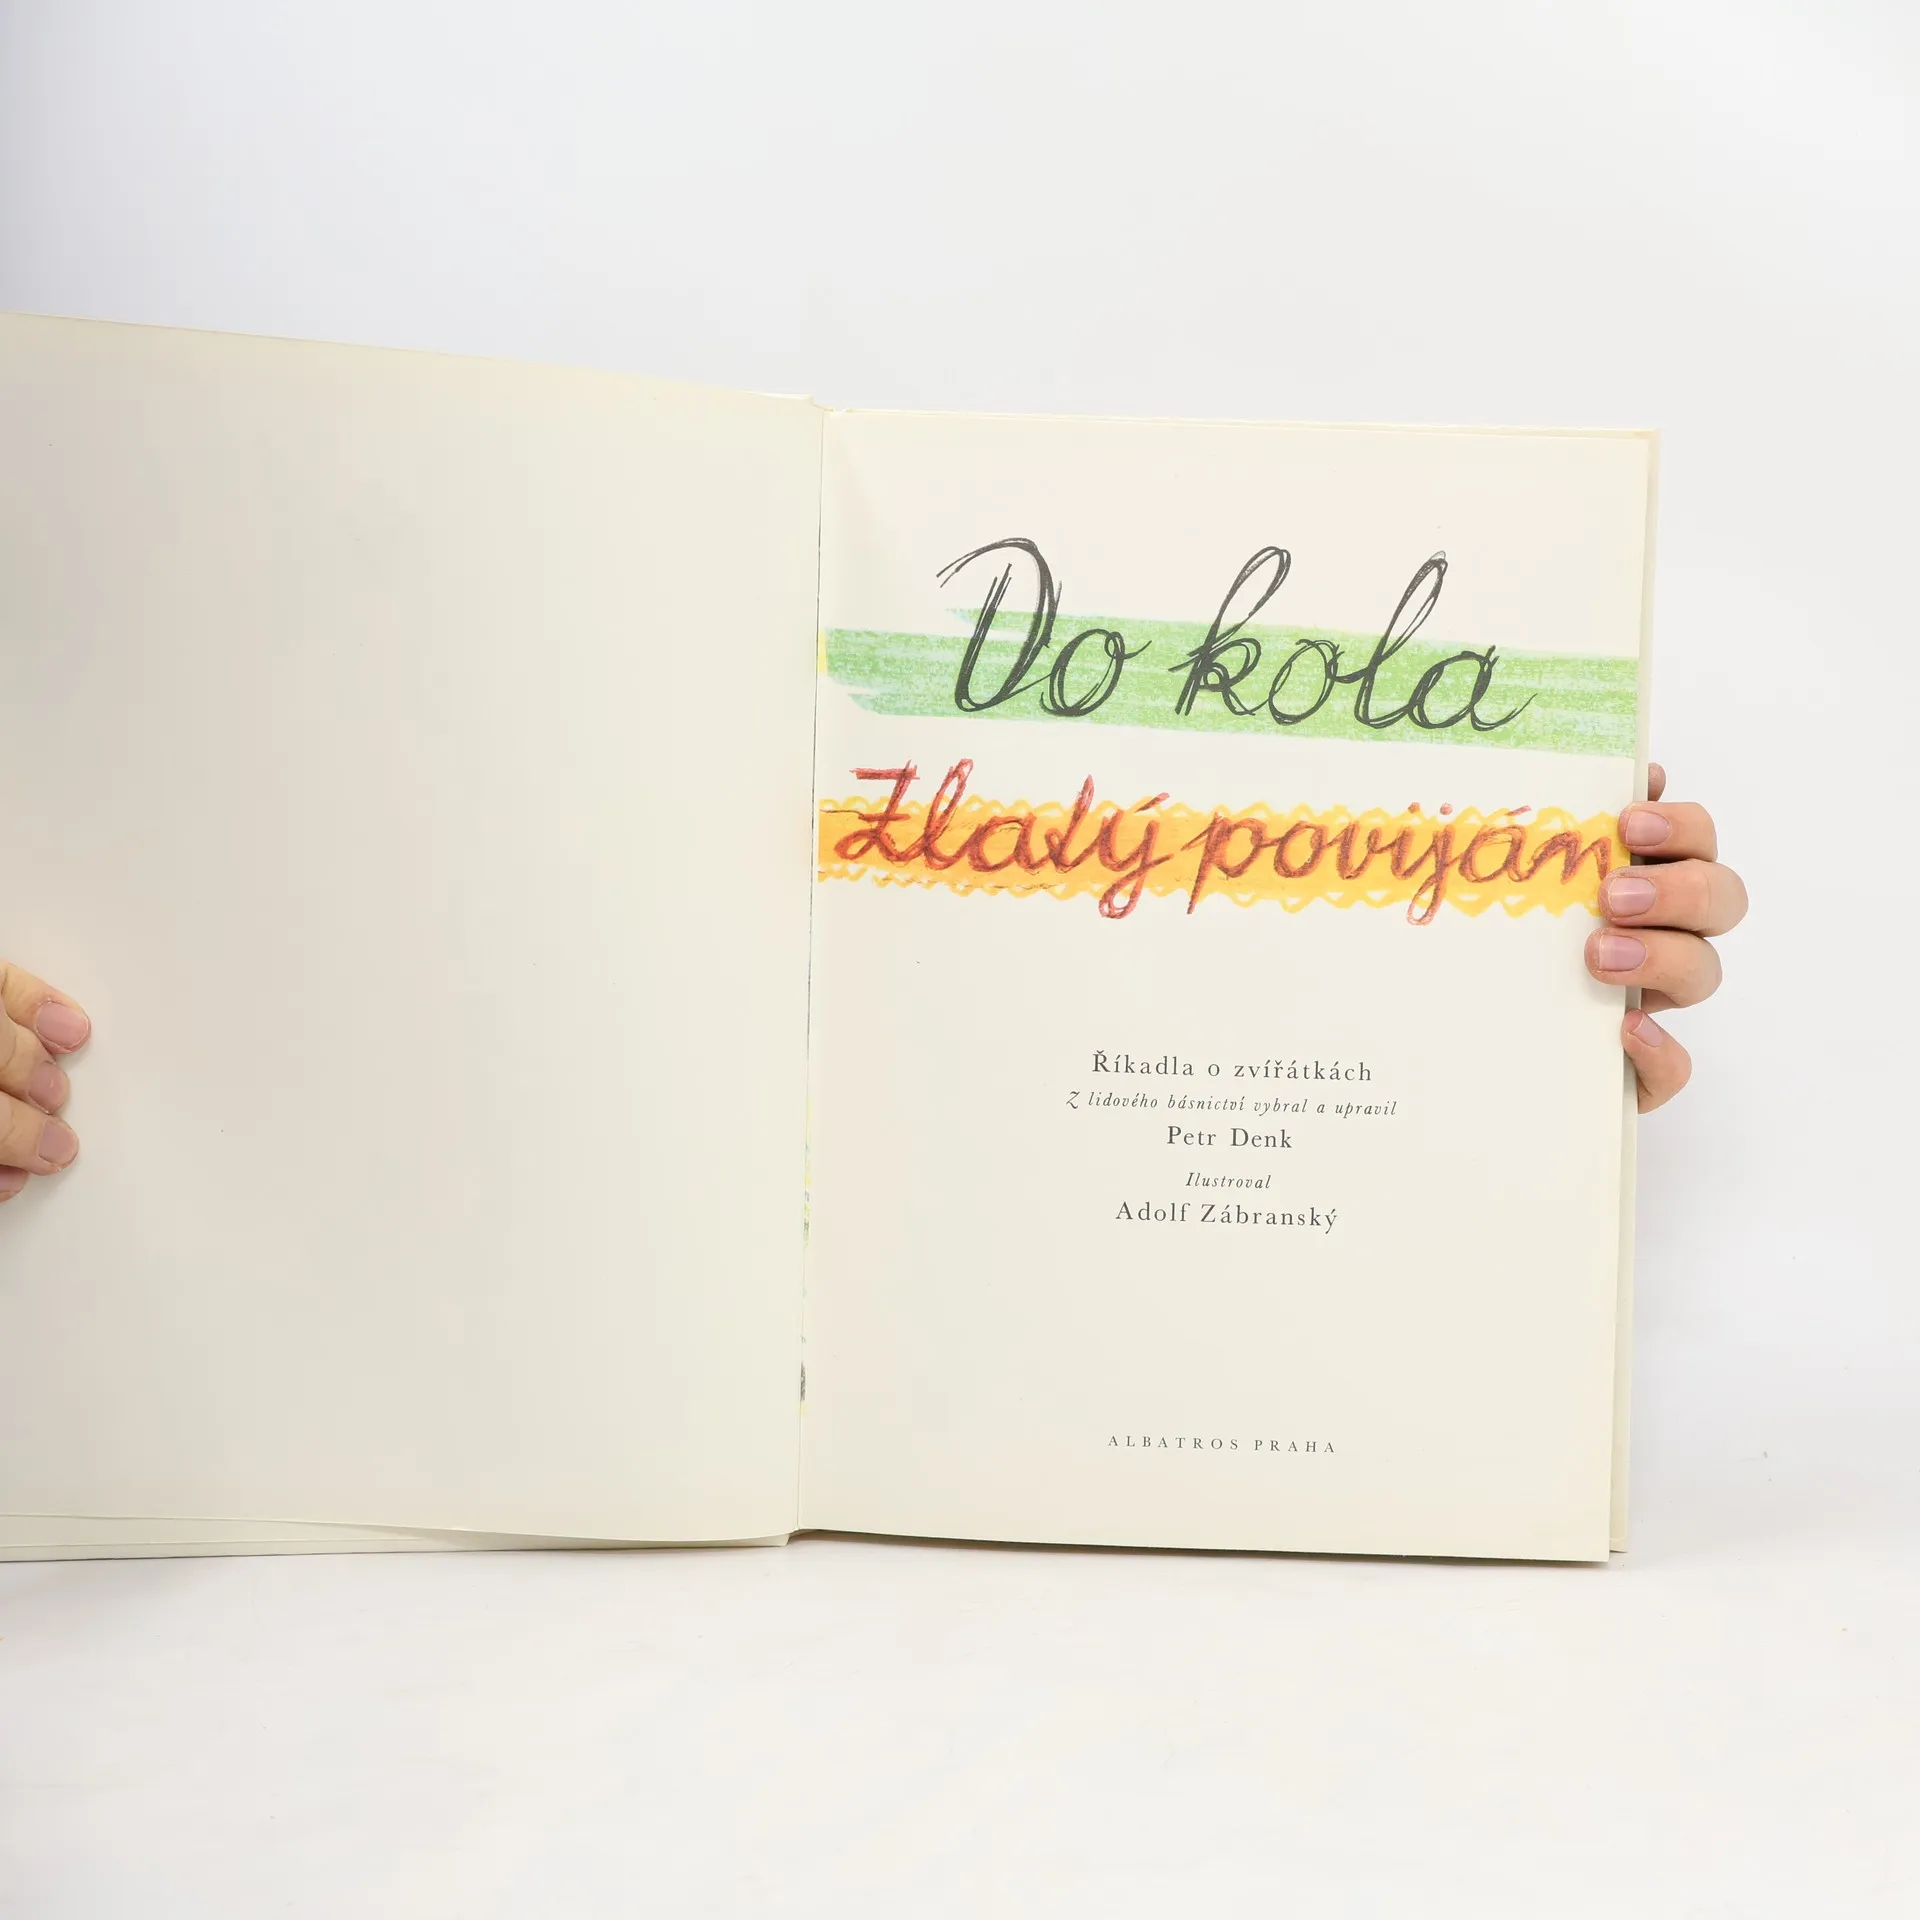 Do kola
Zlatý povijan
Říkadla o zvířátkách
Z lidového básnictví vybral a upravil
Petr Denk
Ilustroval
Adolf Zábranský
ALBATROS PRAHA